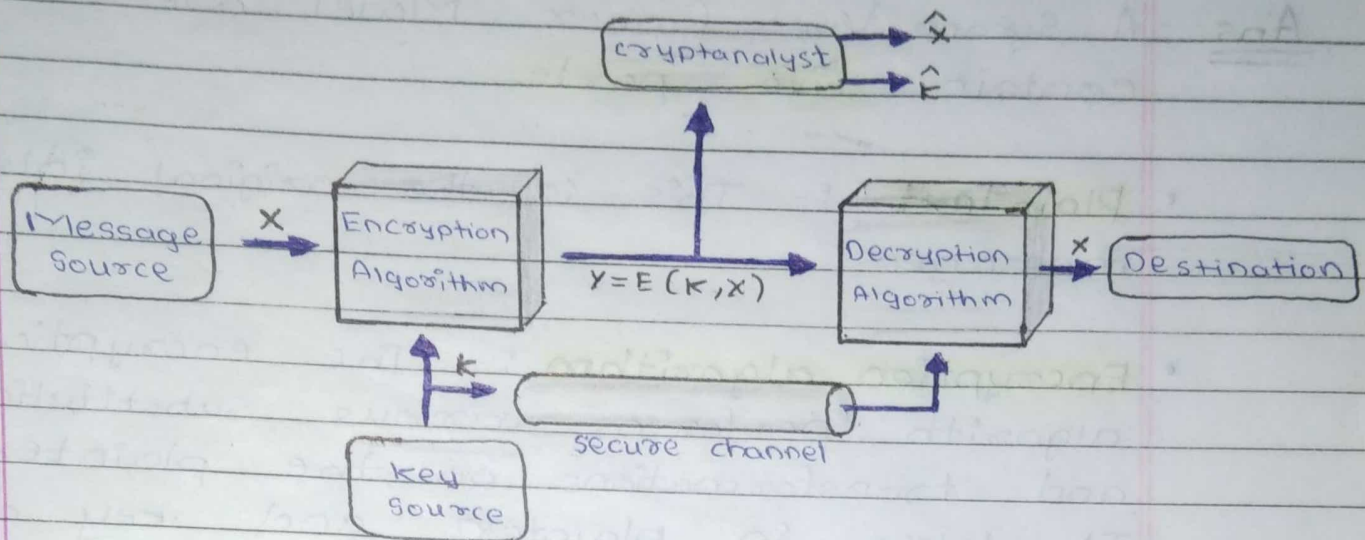 cryptanalyst
X̂
K̂
Message
Source
X
Encryption
Algorithm
Y = E (K, X)
Decryption
Algorithm
X
Destination
K
secure channel
Key
Source